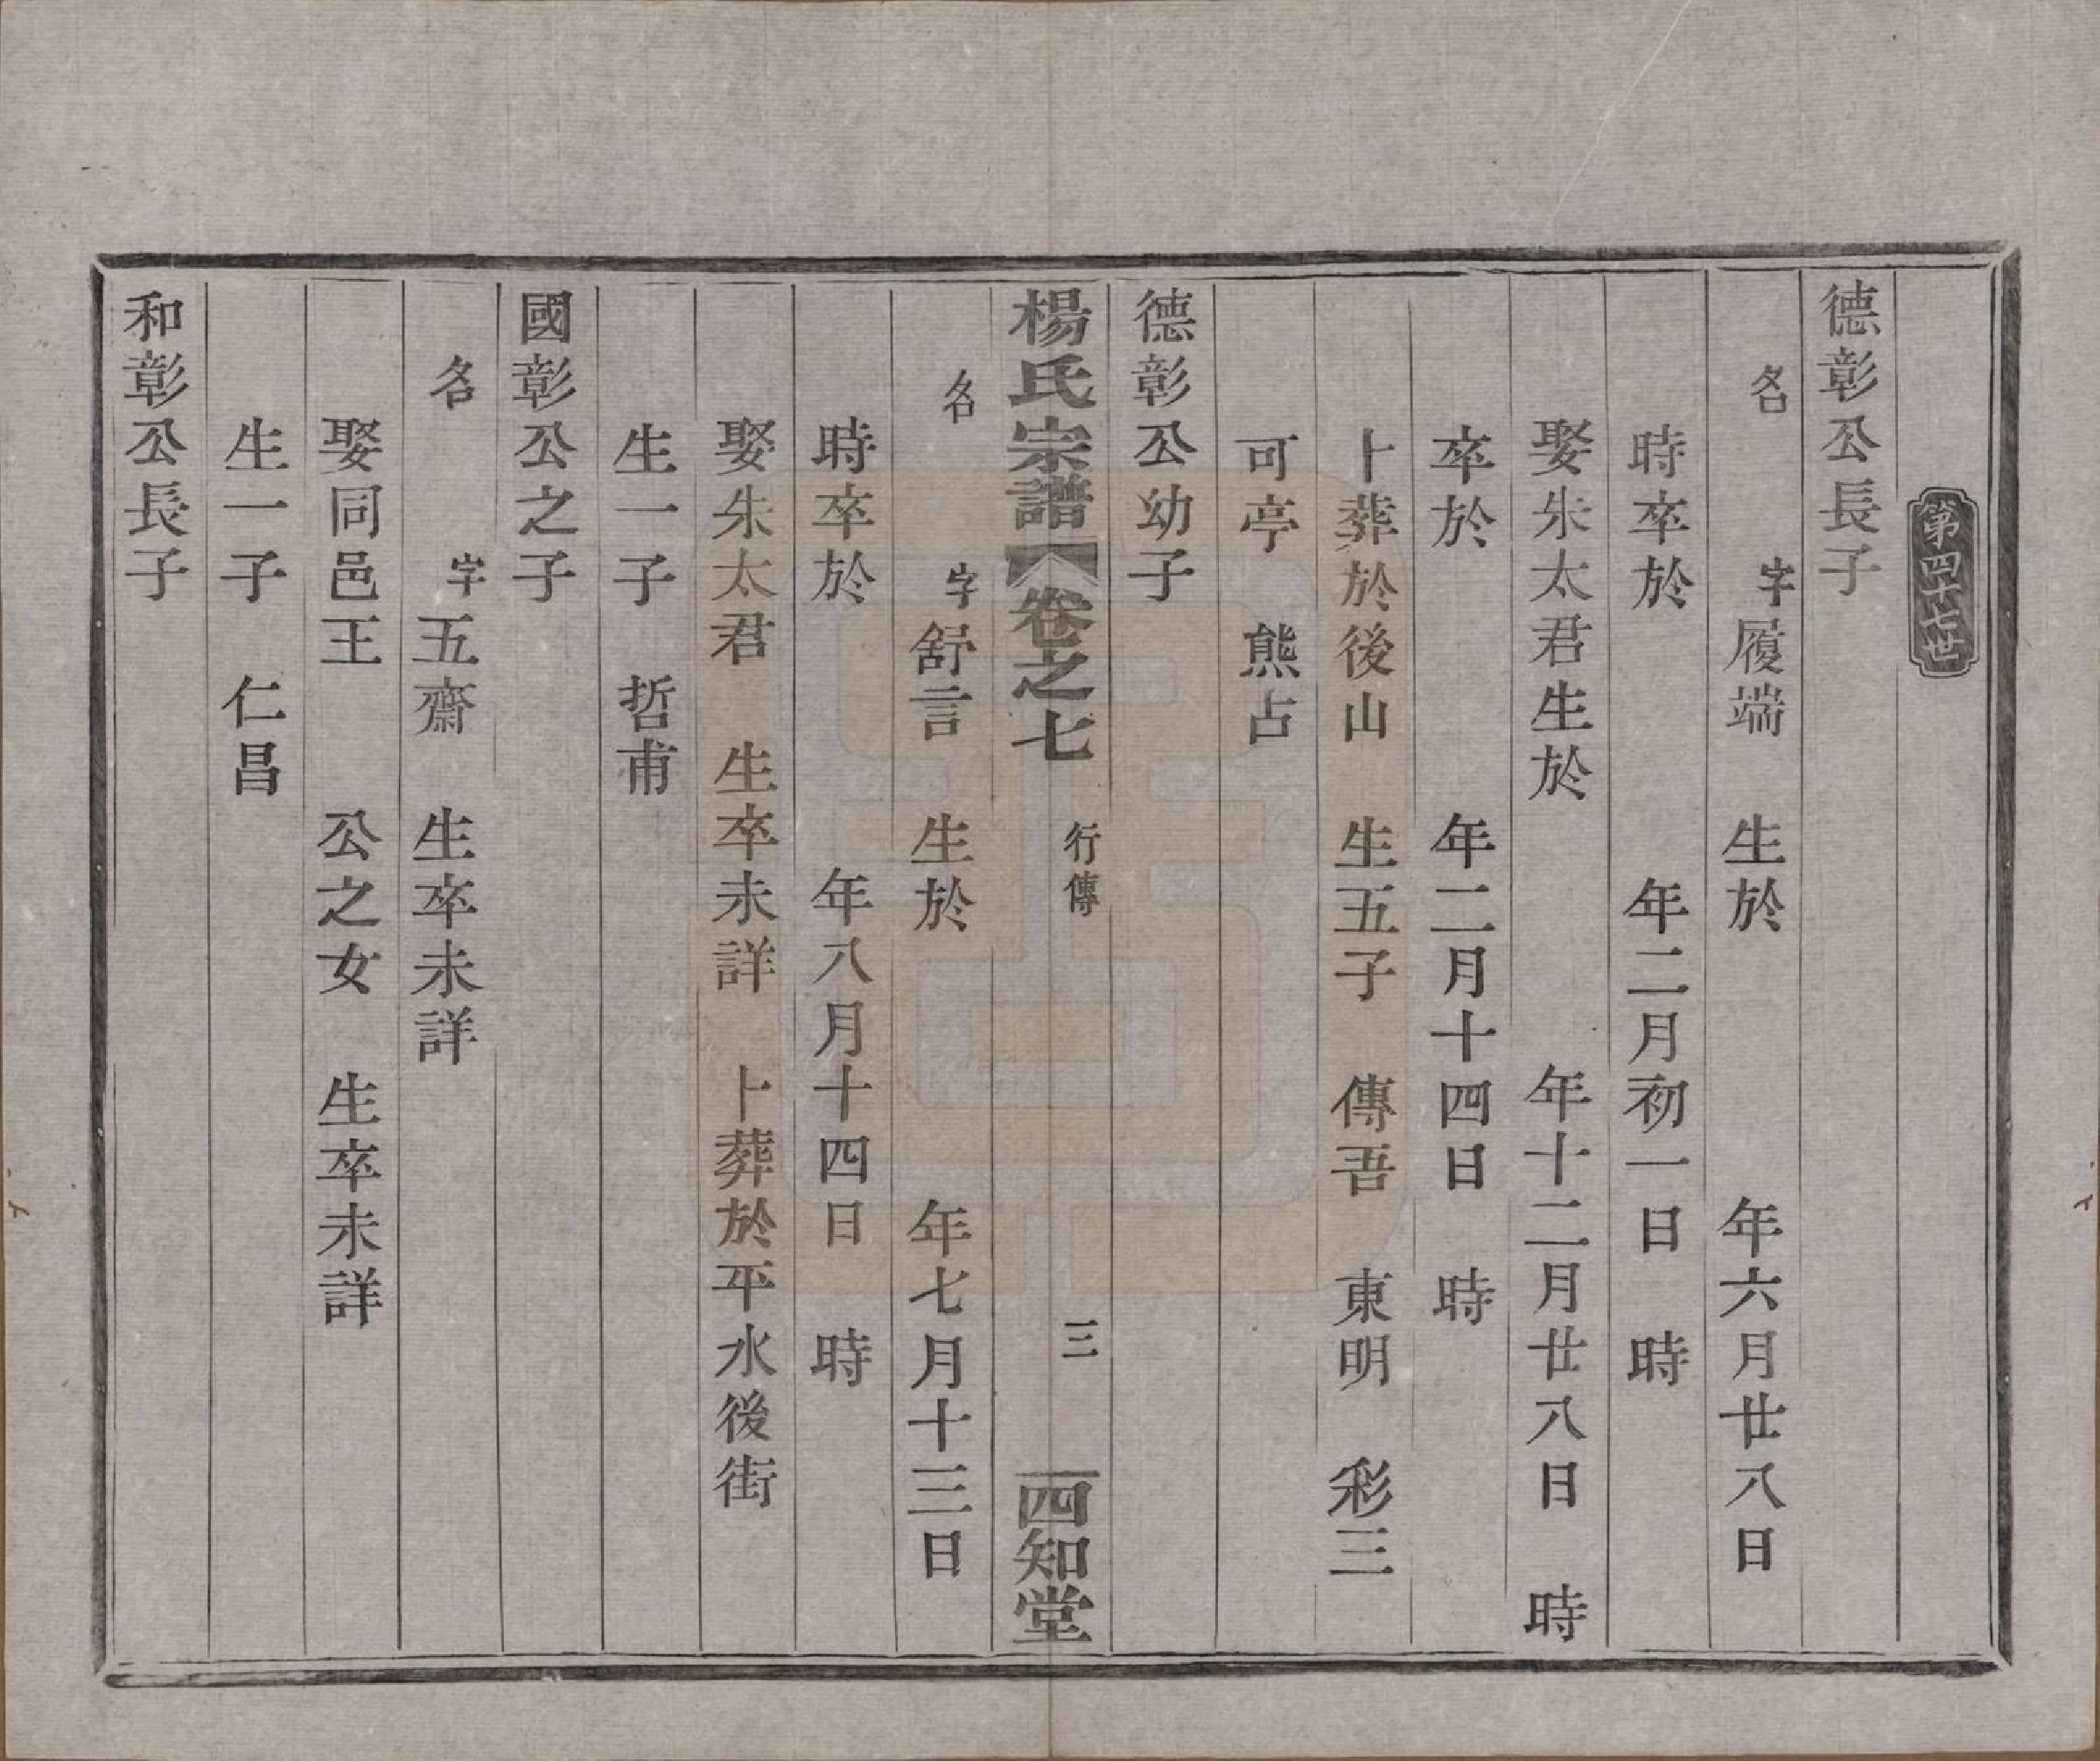 第四十七世
德彰公長子
名　字履端　生於　年六月廿八日
時卒於　年二月初一日　時
娶朱太君生於　年十二月廿八日　時
卒於　年二月十四日　時
卜葬於後山　生五子　傳吾　東明　彩三
可亭　熊占
德彰公幼子
楊氏宗譜　卷之七　行傳　三　四知堂
名　字舒言　生於　年七月十三日
時卒於　年八月十四日　時
娶朱太君　生卒未詳　卜葬於平水後街
生一子　哲甫
國彰公之子
名　字五齋　生卒未詳
娶同邑王　公之女　生卒未詳
生一子　仁昌
和彰公長子